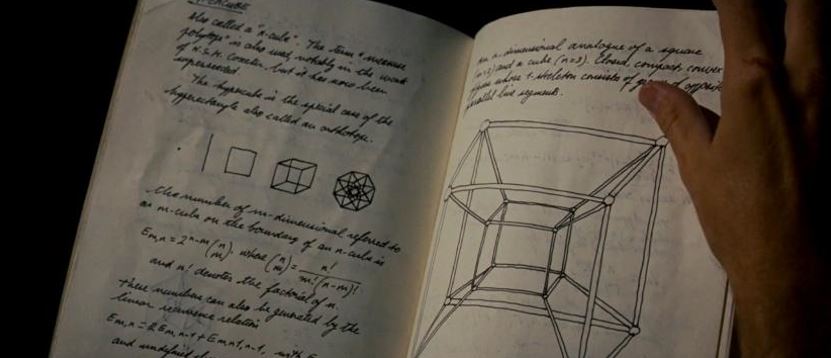 Also called a "n-cube". The term "measure
polytope" is also used, notably in the work
of H.S.M. Coxeter, but it has now been
superseded.
The hypercube is the special case of the
hyperrectangle also called an orthotope.
The number of m-dimensional referred to
an m-cube on the boundary of an n-cube is
Em,n = 2^n-m (n m), where (n m) = n! / m!(n-m)!
and n! denotes the factorial of n.
These numbers can also be generated by the
linear recurrence relation
Em,n = 2Em,n-1 + Em-1,n-1, with E
and undefined
An n-dimensional analogue of a square
(n=2) and a cube (n=3). Closed, compact, convex
whose 1-skeleton consists of of opposite
parallel line segments.